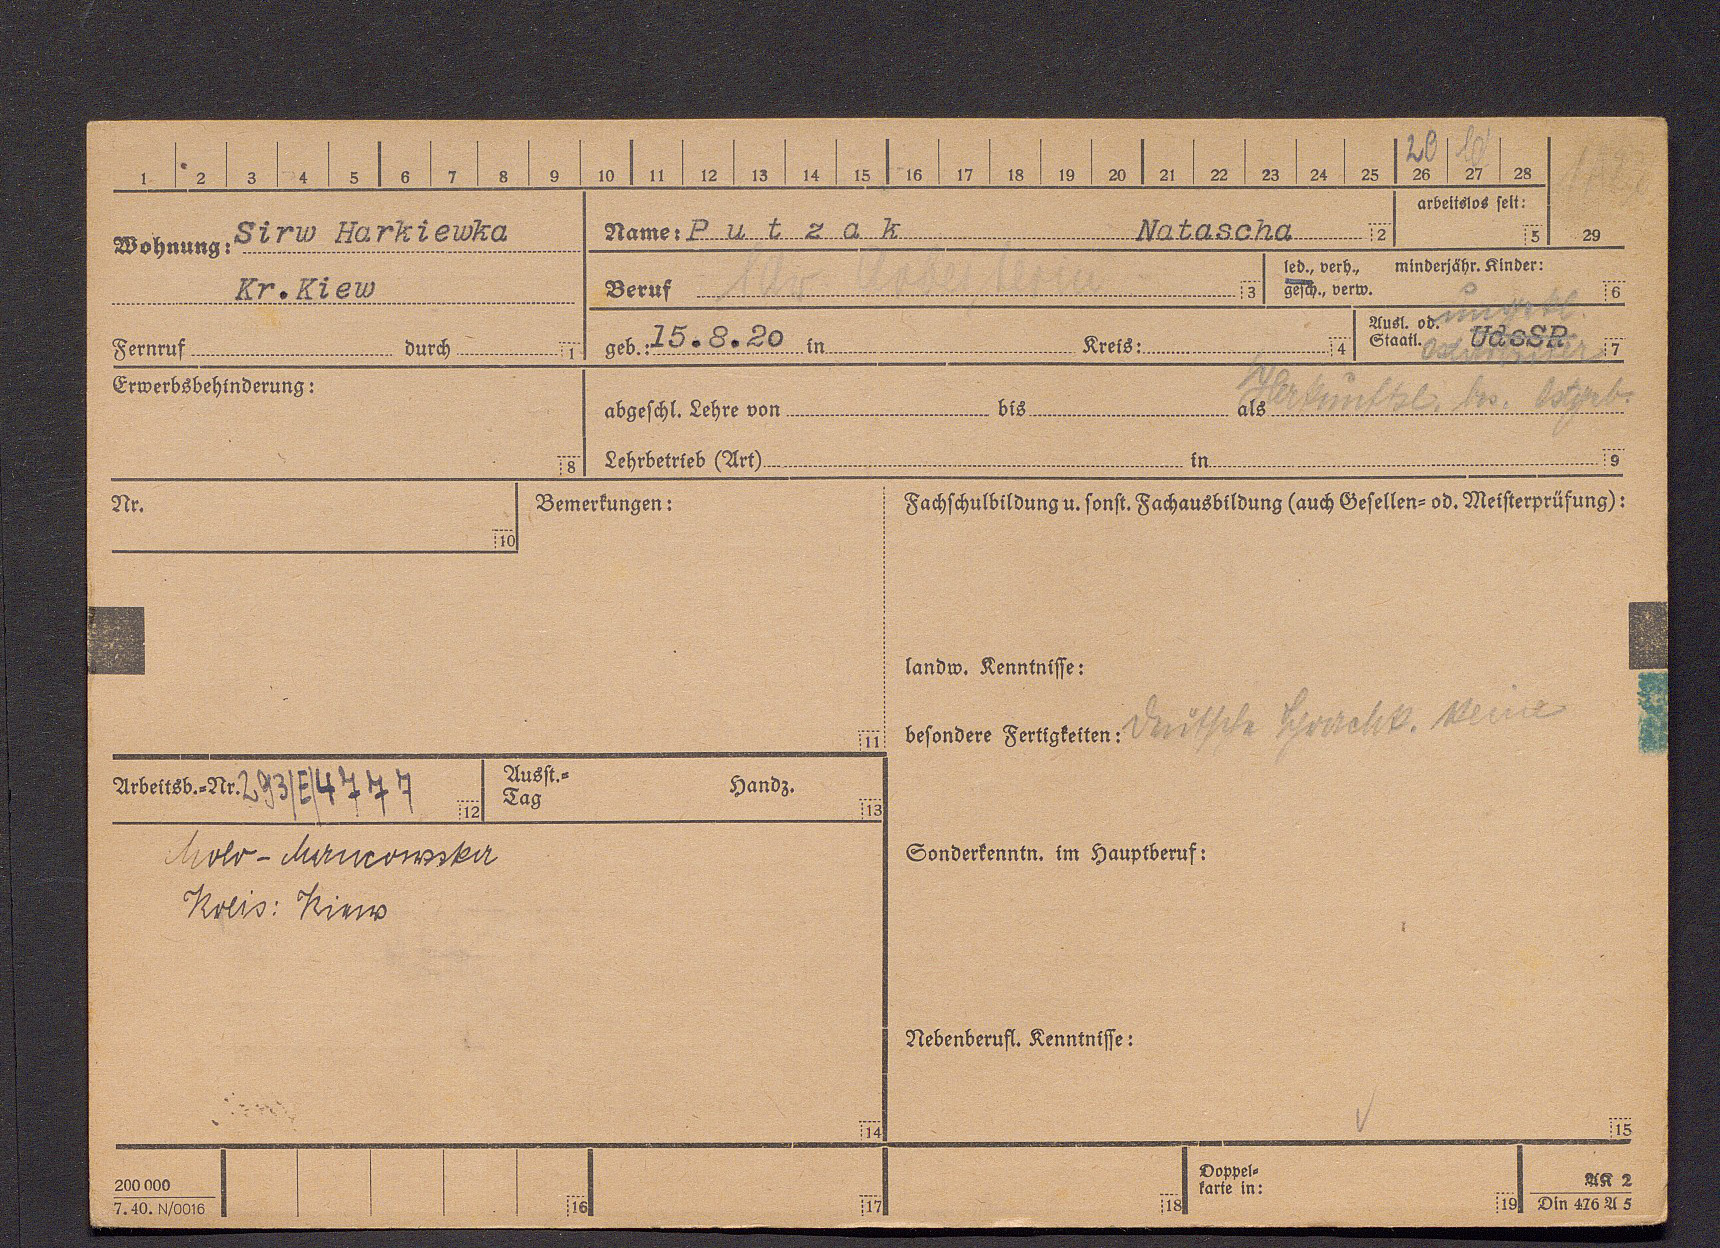 1 2 3 4 5 6 7 8 9 10 11 12 13 14 15 16 17 18 19 20 21 22 23 24 25 26 27 28
20
arbeitslos seit:
5 29
Wohnung: Sirw Harkiewka
Kr.Kiew
Fernruf durch 1
Name: P u t z a k Natascha 2
Beruf 3
led., verh., gesch., verw.
minderjähr. Kinder:
6
geb.: 15.8.20 in Kreis: 4
Ausl. od. Staatl. UdSSR 7
ungekl.
Ostarbeiter
Herkunftsl. bes. Ostgeb.
Erwerbsbehinderung:
8
abgeschl. Lehre von bis als
Lehrbetrieb (Art) in 9
Nr.
10
Bemerkungen:
11
Fachschulbildung u. sonst. Fachausbildung (auch Gesellen- od. Meisterprüfung):
landw. Kenntnisse:
besondere Fertigkeiten: Deutsche Sprachk. keine
Arbeitsb.-Nr. 293/E/4777 12
Ausst.-Tag Handz. 13
Kreis: Kiew
14
Sonderkenntn. im Hauptberuf:
Nebenberufl. Kenntnisse:
15
200 000
7. 40. N/0016
16 17 18
Doppelkarte in:
19
AK 2
Din 476 A 5